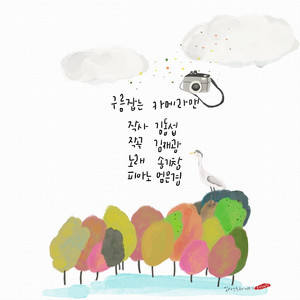 구름잡는 카메라맨
작사 김동섭
작곡 김재광
노래 송기창
피아노 엄은경